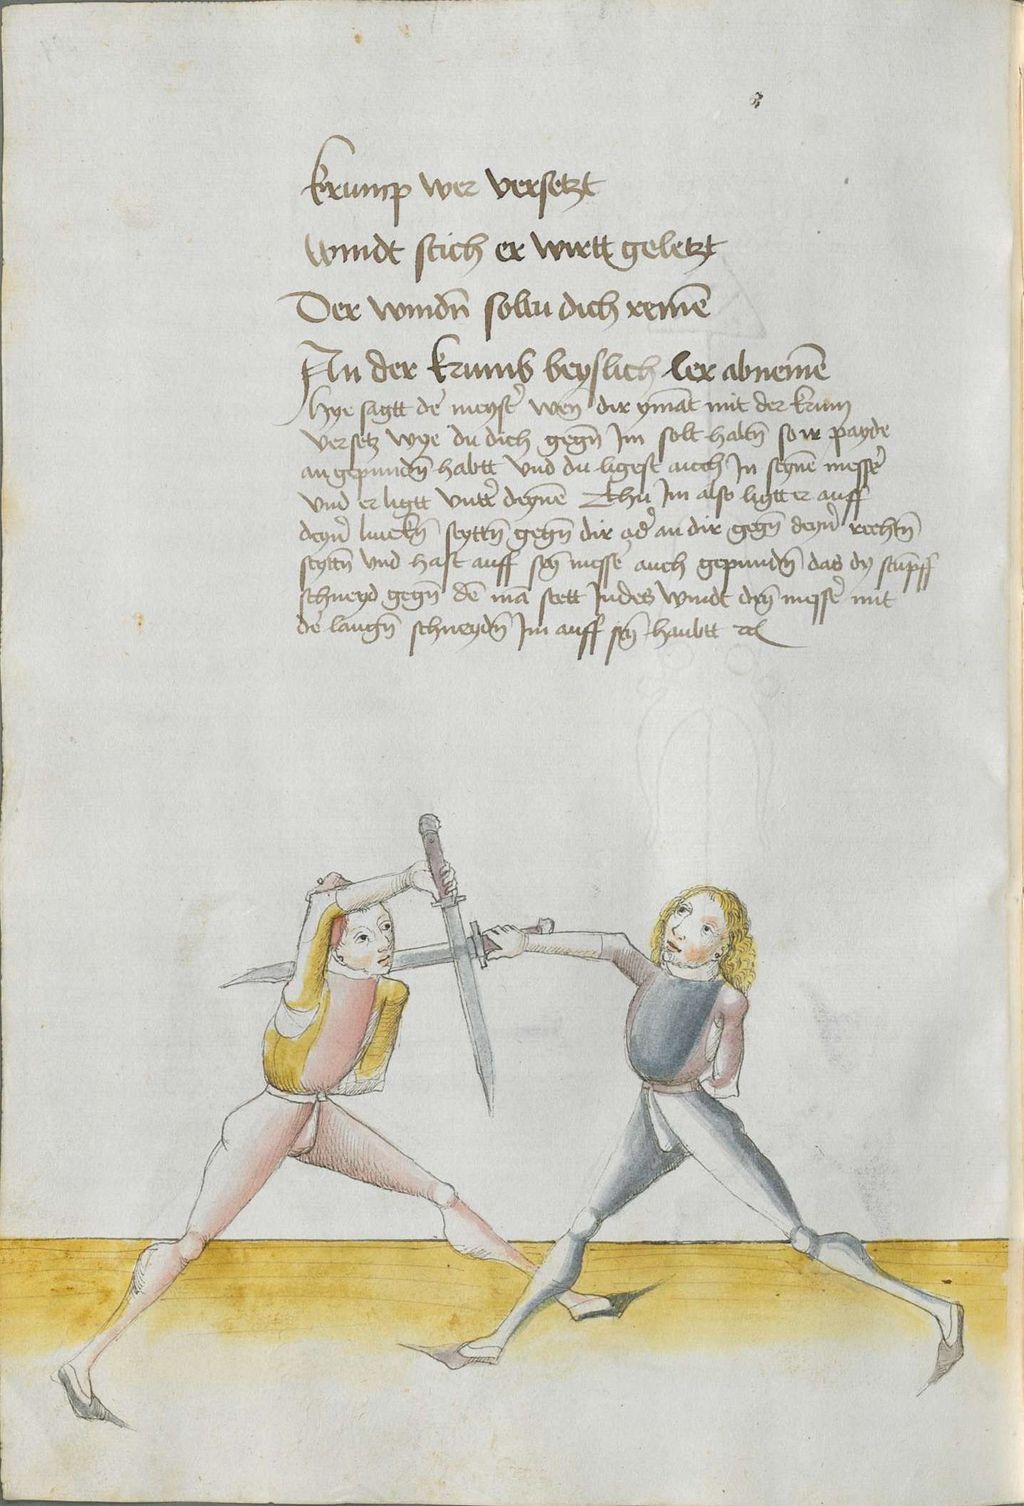 krump wer versetzt
windt stich er wirtt geletzt
Der windn̄ soltu dich remē
An der krumb beyslich ler abnemē
Hye sagtt dē meystˀ wen̄ dir ymāt mit der krum
versetz wye du dich gegn̄ Im solt haltn̄ so ir payde
an gepundn̄ habtt vnd du ligest auch In seynē messˀ
vnd er ligtt vnttˀ deynē Thu Im also ligtt er auff
deynˀ linckn̄ seyttn̄ gegn̄ dir odˀ an dir gegn̄ deynˀ rechtn̄
seyttn̄ vnd hast auff seȳ messˀ auch gepundn̄ das dy stumpff
schneyd gegn̄ dē mā stett Indes windt deȳ messˀ mit
dē langn̄ schneydn̄ Im auff seȳ haubtt